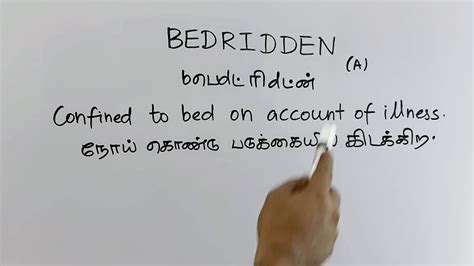 BEDRIDDEN
(A)
பெட்ரிட்டன்
Confined to bed on account of illness.
நோய் கொண்டு படுக்கையில் கிடக்கிற.